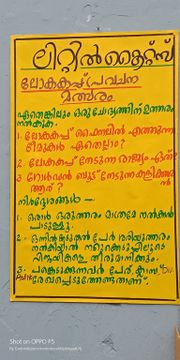 ലിറ്റിൽ കൈറ്റ്സ്
ലോകകപ്പ് പ്രവചന
മത്സരം
ഏതെങ്കിലും ഒരു ചോദ്യത്തിന് ഉത്തരം
നൽകുക.
1. ലോകകപ്പ് ഫൈനലിൽ എത്തുന്ന
ടീമുകൾ ഏതെല്ലാം?
2. ലോകകപ്പ് നേടുന്ന രാജ്യം ഏത്?
3. ഗോൾഡൻ ബൂട്ട് നേടുന്ന കളിക്കാരൻ
ആര് ?
നിർദ്ദേശങ്ങൾ :-
1. ഒരാൾ ഒരുത്തരം മാത്രമേ നൽകാൻ
പാടുള്ളൂ.
2. ഒന്നിൽകൂടുതൽ പേർ ശരിയുത്തരം
നൽകിയാൽ നറുക്കെടുപ്പിലൂടെ
വിജയികളെ തീരുമാനിക്കും.
3. പങ്കെടുക്കുന്നവർ പേര്, ക്ലാസ്
രേഖപ്പെടുത്തേണ്ടതാണ്.
Shot on OPPO F5